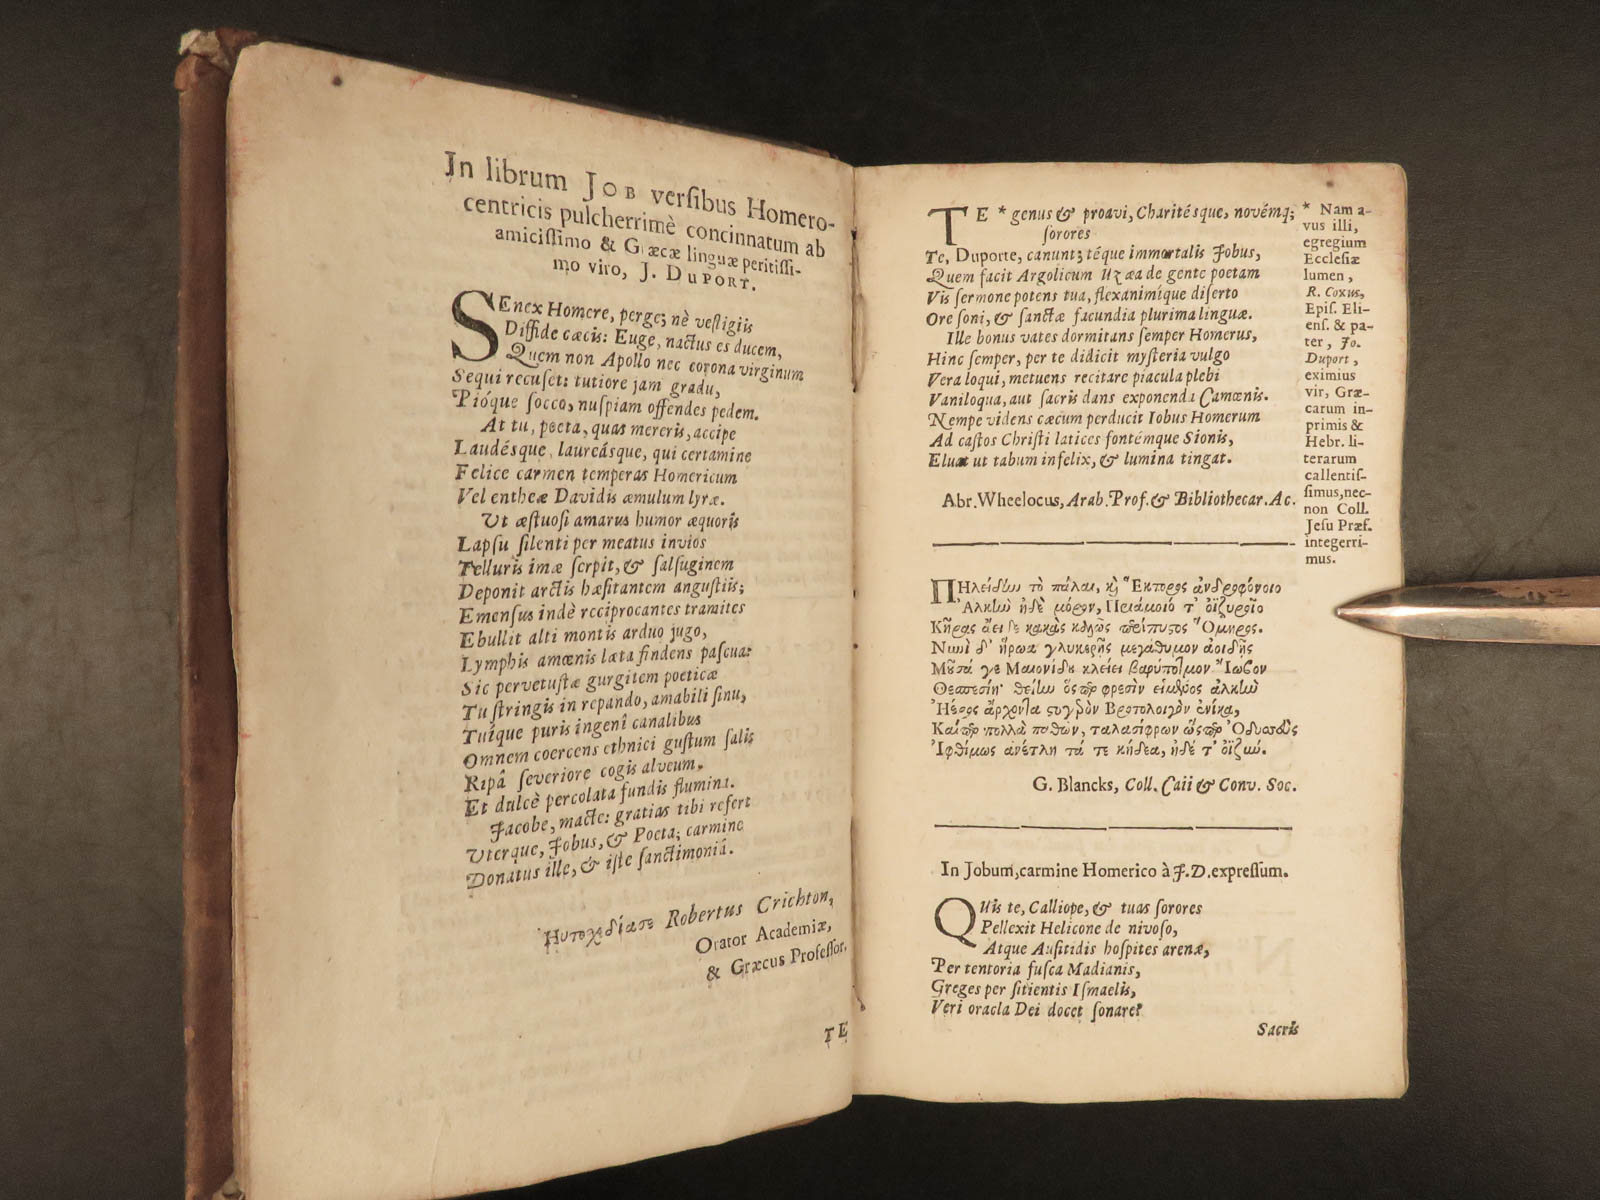 In librum JOB versibus Homero-
centricis pulcherrimè concinnatum ab
amicissimo & Græcæ linguæ peritissi-
mo viro, J. DUPORT.
SEnex Homere, perge; nè vestigiis
Diffide cæcis: Euge, nactus es ducem,
Quem non Apollo nec corona virginum
Sequi recuset: tutiore jam gradu,
Pióque socco, nuspiam offendes pedem.
At tu, poeta, quas mereris, accipe
Laudésque, laureásque, qui certamine
Felice carmen temperas Homericum
Vel entheæ Davidis æmulum lyræ.
Ut æstuosi amarus humor æquoris
Lapsu silenti per meatus invios
Telluris imæ serpit, & salsuginem
Deponit arctis hæsitantem angustiis;
Emensus indè reciprocantes tramites
Ebullit alti montis arduo jugo,
Lymphis amœnis læta findens pascua:
Sic pervetustæ gurgitem poeticæ
Tu stringis in repando, amabili sinu,
Tuique puris ingenî canalibus
Omnem coercens ethnici gustum salis
Ripâ severiore cogis alveum.
Et dulcè percolata fundis flumina.
Jacobe, macte: gratias tibi refert
Uterque, Jobus, & Poeta; carmine
Donatus ille, & iste sanctimoniâ.
Robertus Crichton,
Orator Academiæ,
& Græcus Professor.
TE
TE * genus & proavi, Charitésque, novémq;
sorores
Te, Duporte, canunt; téque immortalis Jobus,
Quem facit Argolicum Uzæa de gente poetam
Vis sermone potens tua, flexanimíque diserto
Ore soni, & sanctæ facundia plurima linguæ.
Ille bonus vates dormitans semper Homerus,
Hinc semper, per te didicit mysteria vulgo
Vera loqui, metuens recitare piacula plebi
Vaniloqua, aut sacris dans exponenda Camœnis.
Nempe videns cæcum perducit Iobus Homerum
Ad castos Christi latices fontémque Sionis,
Eluat ut tabum infelix, & lumina tingat.
Abr. Wheelocus, Arab. Prof. & Bibliothecar. Ac.
* Nam a-
vus illi,
egregium
Ecclesiæ
lumen,
R. Coxus,
Epis. Eli-
ens. & pa-
ter, Jo.
Duport,
eximius
vir, Græ-
carum in-
primis &
Hebr. li-
terarum
callentis-
simus, nec-
non Coll.
Jesu Præf.
integerri-
mus.
ΠΗλείδην τὸ πάλαι, κ̀ Ἕκτορος ἀνδροφόνοιο
Ἀλκὴν ἠδὲ μόρον, Πριάμοιό τ' ὀϊζυροῖο
Κῆρας ἄειδε κακὰς Ὅμηρος.
Νυνὶ δ' ἥρωα γλυκερῆς μεγάθυμον ἀοιδῆς
Μοῦσά γε Μαιονίδου κλείει βαρύποτμον Ἴωβον
Θεσπεσίη· φρεσὶν ἀλκὴν
Ἥρως στυγρὸν βροτολοιγὸν ἐνίκα,
πολλὰ παθὼν, ταλασίφρων ὥσπερ Ὀδυσσεὺς
Ἰφθίμως ἀνέτλη τά τε κήδεα, ἠδέ τ' ὀϊζύν.
G. Blancks, Coll. Caii & Conv. Soc.
In Jobum, carmine Homerico à J. D. expressum.
QUis te, Calliope, & tuas sorores
Pellexit Helicone de nivoso,
Atque Ausitidis hospites arenæ,
Per tentoria fusca Madianis,
Greges per sitientis Ismaelis,
Veri oracla Dei docet sonare?
Sacris